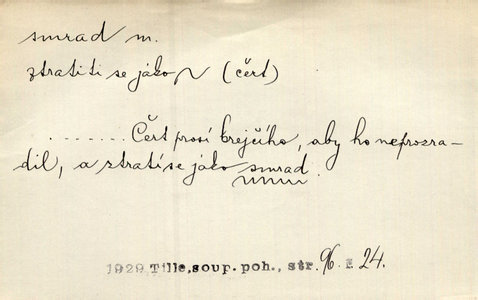 smrad m.
ztratiti se jako ~ (čert)
........ Čert prosí krejčího, aby ho neprozra-
dil, a ztratí se jako smrad.
1929 Tille, soup. poh., str. 96 ř 24.